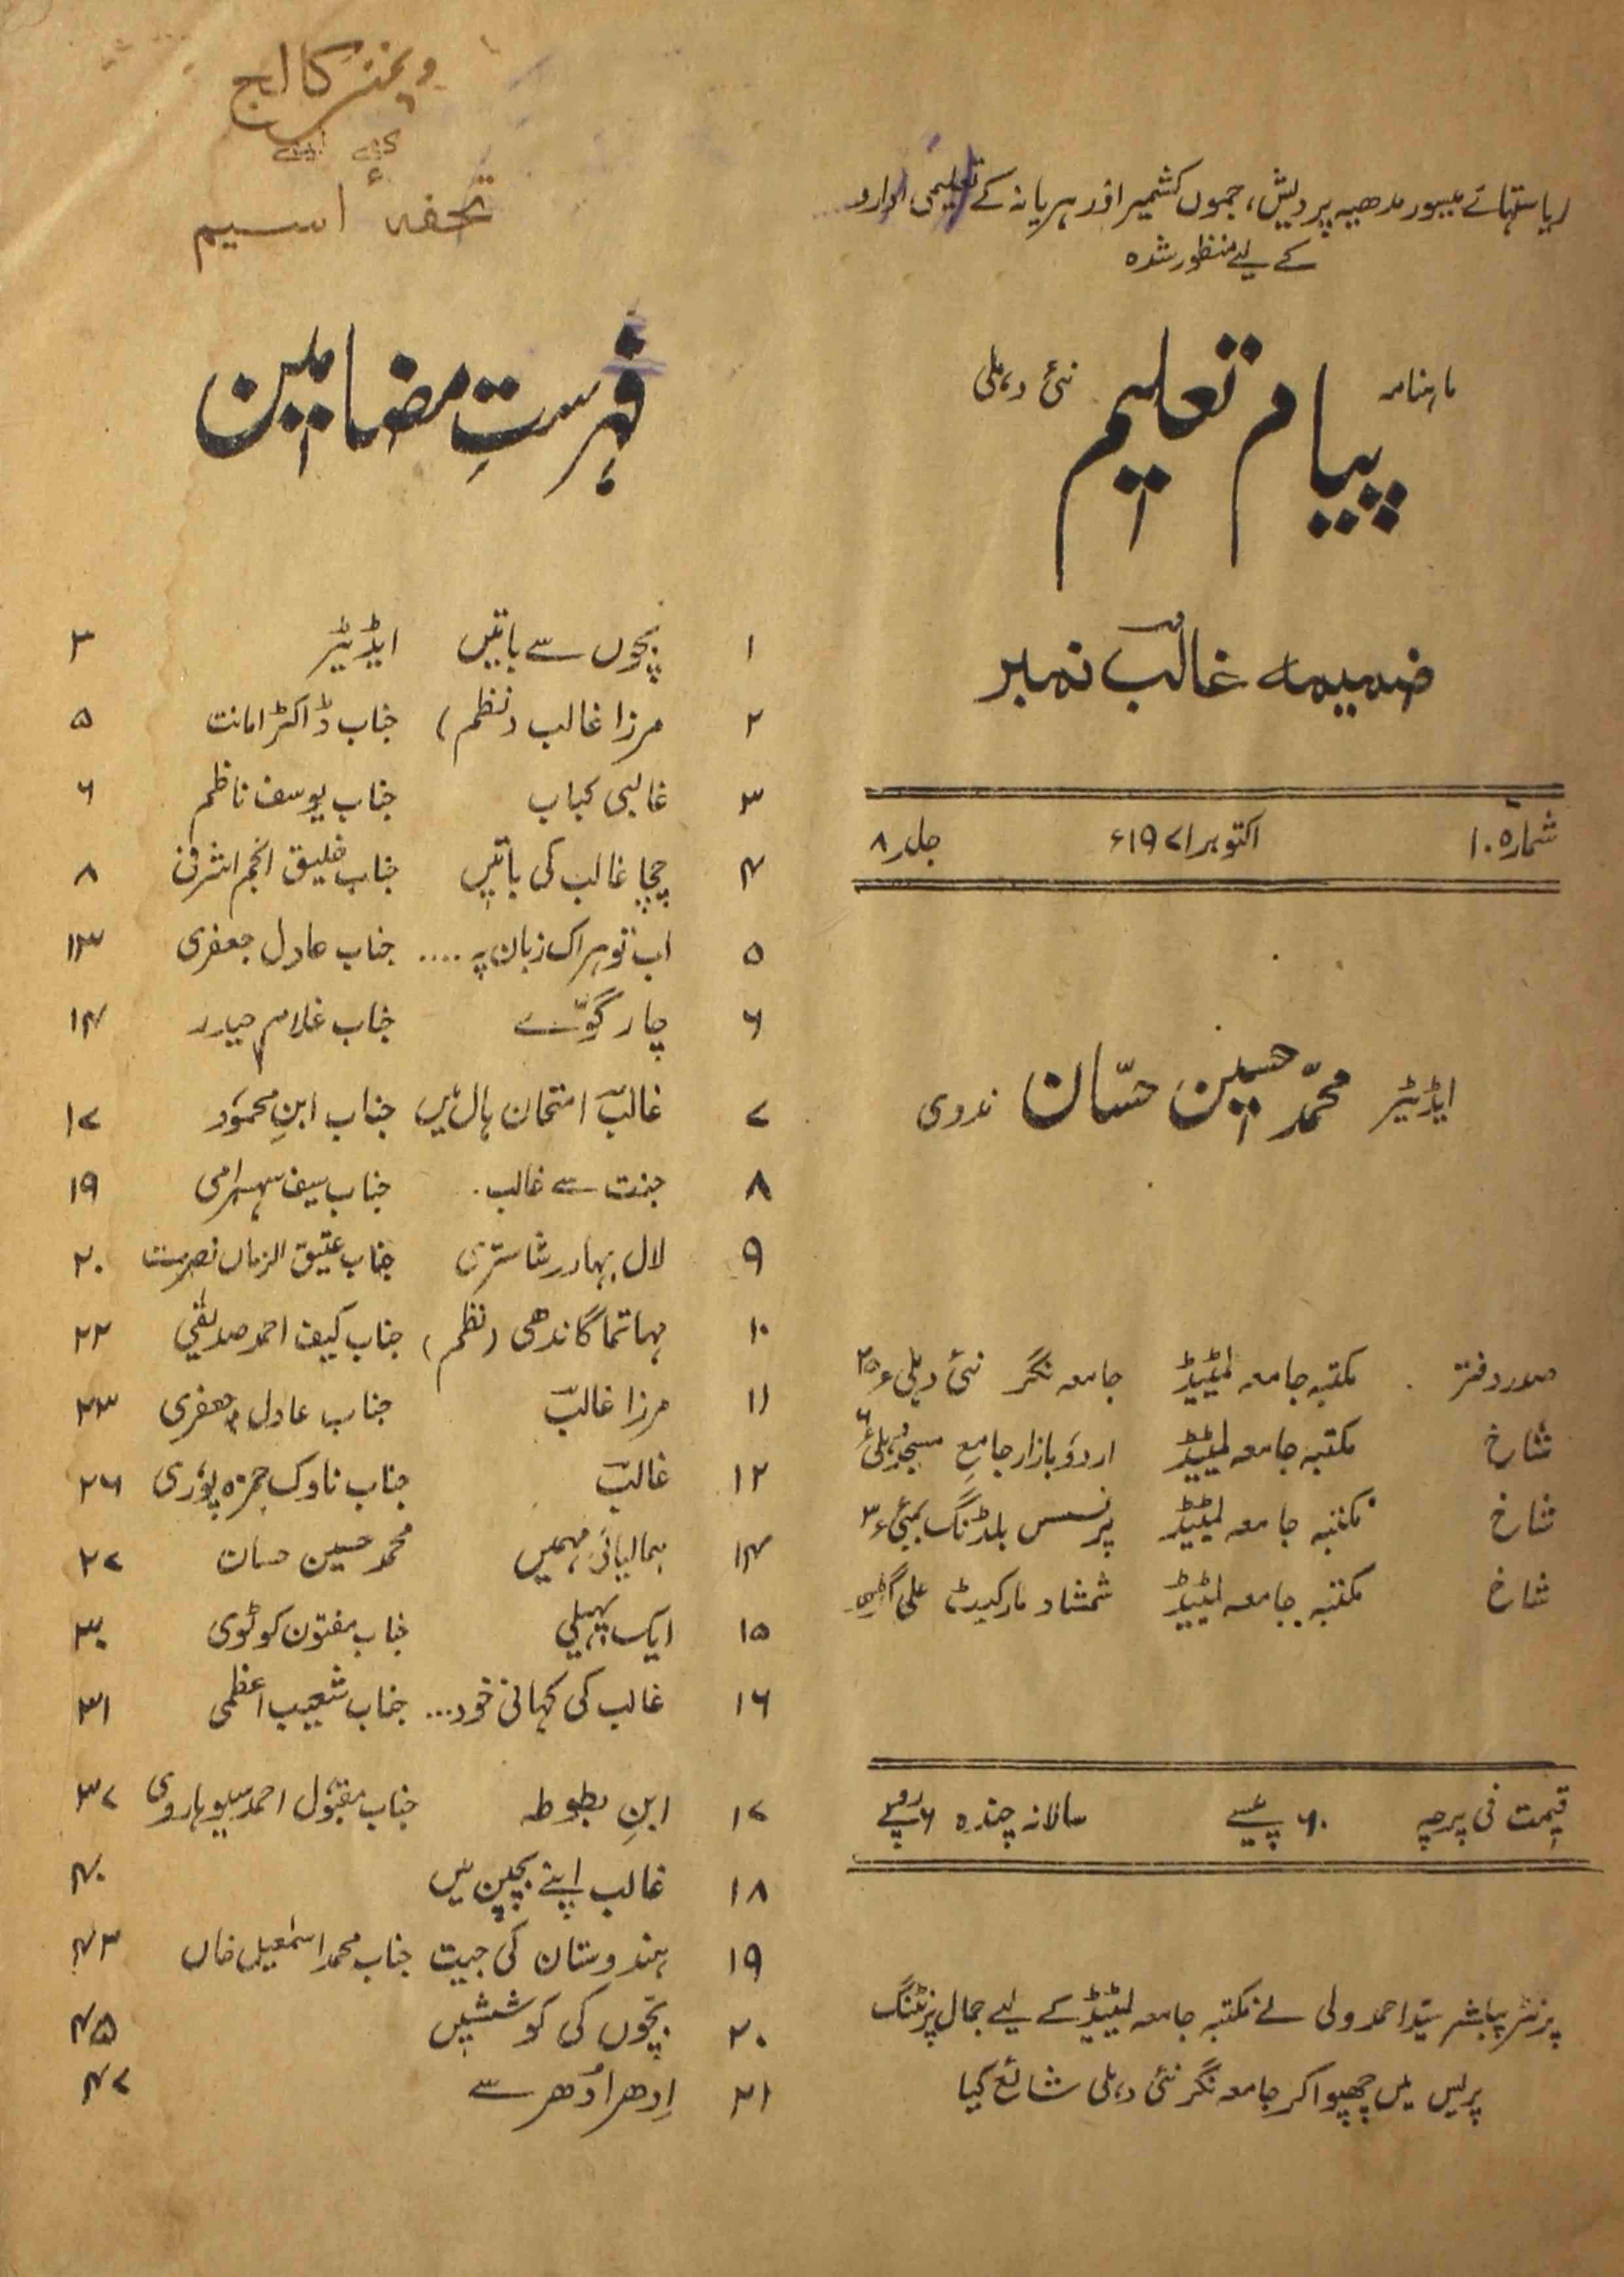 ریاستہائے میسور مدھیہ پردیش، جموں کشمیر اور ہریانہ کے تعلیمی
کے لیے منظور شدہ
ماہنامہ پیام تعلیم نئی دہلی
ضمیمہ غالبؔ نمبر
شمارہ ۱۰ اکتوبر ۱۹۷۱ء جلد ۸
ایڈیٹر محمّد حسین حسّان ندوی
صدر دفتر مکتبہ جامعہ لمیٹیڈ جامعہ نگر نئی دہلی ۲۵
شاخ مکتبہ جامعہ لمیٹیڈ اردو بازار جامع مسجد دہلی ۶
شاخ مکتبہ جامعہ لمیٹیڈ پرنسس بلڈنگ بمبئی ۳
شاخ مکتبہ جامعہ لمیٹیڈ شمشاد مارکیٹ علی گڑھ
قیمت فی پرچہ ۶۰ پیسے سالانہ چندہ ۶ روپے
پرنٹر پبلشر سیّد احمد ولی نے مکتبہ جامعہ لمیٹیڈ کے لیے جمال پرنٹنگ
پریس میں چھپوا کر جامعہ نگر نئی دہلی شائع کیا
ویمنز کالج
کے لیے
تحفہ اسیم
فہرستِ مضامین
۱ بچّوں سے باتیں ایڈیٹر ۳
۲ مرزا غالب (نظم) جناب ڈاکٹر امانت ۵
۳ غالبی کباب جناب یوسف ناظم ۶
۴ چچا غالب کی باتیں جناب خلیق انجم اشرفی ۸
۵ اب تو ہر اک زبان پہ .... جناب عادل جعفری ۱۳
۶ چار گوّے جناب غلام حیدر ۱۴
۷ غالبؔ امتحان ہال میں جناب ابنِ محمود ۱۷
۸ جنت سے غالب جناب سیف سہسرامی ۱۹
۹ لال بہادر شاستری جناب عتیق الزماں نصرت ۲۰
۱۰ مہاتما گاندھی (نظم) جناب کیف احمد صدیقی ۲۲
۱۱ مرزا غالبؔ جناب عادل جعفری ۲۳
۱۲ غالبؔ جناب ناوک حمزہ پوری ۲۶
۱۴ ہمالیائی مہمیں محمد حسین حسان ۲۷
۱۵ ایک پہیلی جناب مفتون کوٹوی ۳۰
۱۶ غالب کی کہانی خود... جناب شعیب اعظمی ۳۱
۱۷ ابنِ بطوطہ جناب مقبول احمد سیوہاروی ۳۷
۱۸ غالب اپنے بچپن میں ۴۰
۱۹ ہندوستان کی جیت جناب محمد اسمٰعیل خاں ۴۳
۲۰ بچّوں کی کوششیں ۴۵
۲۱ اِدھر اُدھر سے ۴۷